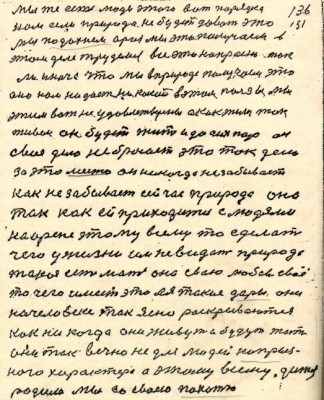 мы же сами люди этого вот порядка 136
нам если природа не будет давать это 131
мы подохнем а раз мы это получаем в
этом деле трудимся все это напрасно так
ли иначе что мы в природе получаем это
оно нам не дает никакой в этом пользы мы
этим вот не удовлетворены а как жили так
живем он будет жить и до сих пор он
свое дело не бросает это так дело
за это место он никогда не забывает
как не забывает сейчас природа она
так как ей приходится с людями
наорене этому всему то сделат
чего у жизни им не видат природа
такая ест мать она сваю любов свае
то чего имеит это ея такия дары они
на человеке так ясно раскрываются
как никогда они живут и будут жить
они так вечно не для людей напрыс-
ного характера а этому всему дитя
родили мы со своею похотю